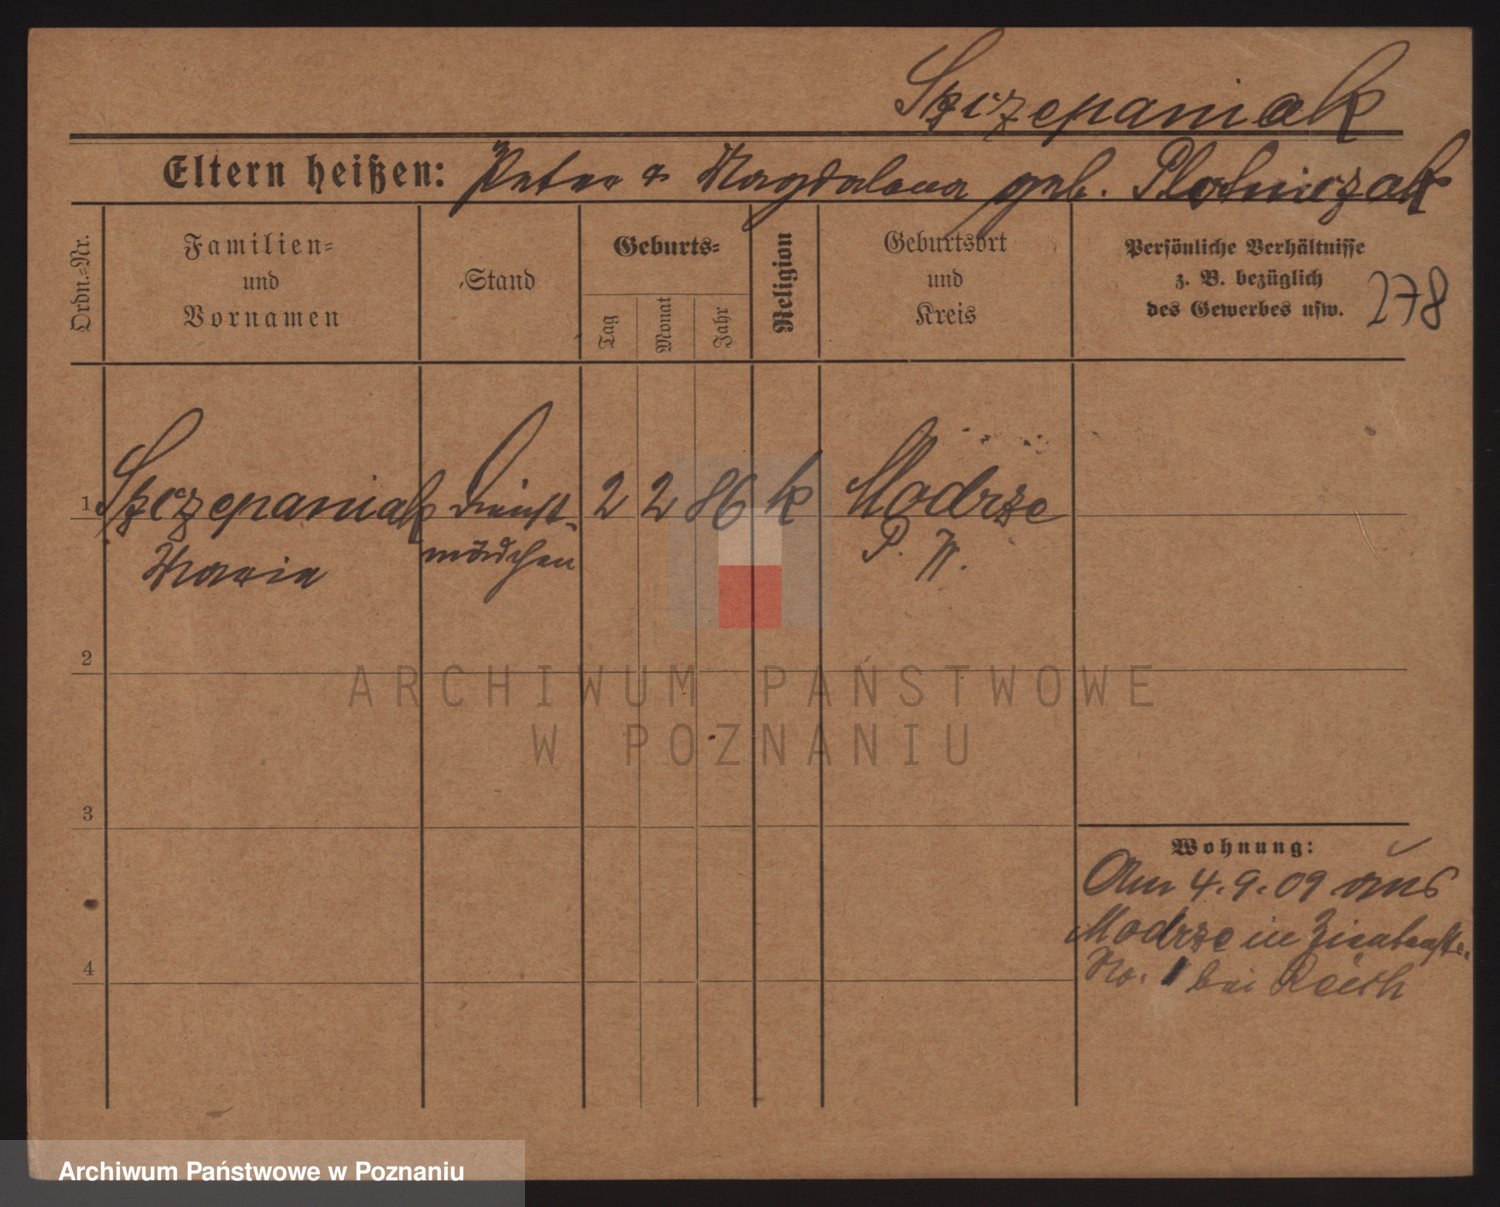 Szczepaniak
Eltern heißen: Peter & Magdalena geb. Plotniczak
Ordn.=Nr.
Familien=
und
Vornamen
Stand
Geburts=
Tag
Monat
Jahr
Religion
Geburtsort
und
Kreis
Persönliche Verhältnisse
z. B. bezüglich
des Gewerbes usw.
278
1 Szczepaniak Dienst- 2 2 86 k Modrze
Maria mädchen P. W.
2
3
4
Wohnung:
Am 4.9.09 aus
Modrze in
No. 1 bei
ARCHIWUM PAŃSTWOWE
W POZNANIU
Archiwum Państwowe w Poznaniu